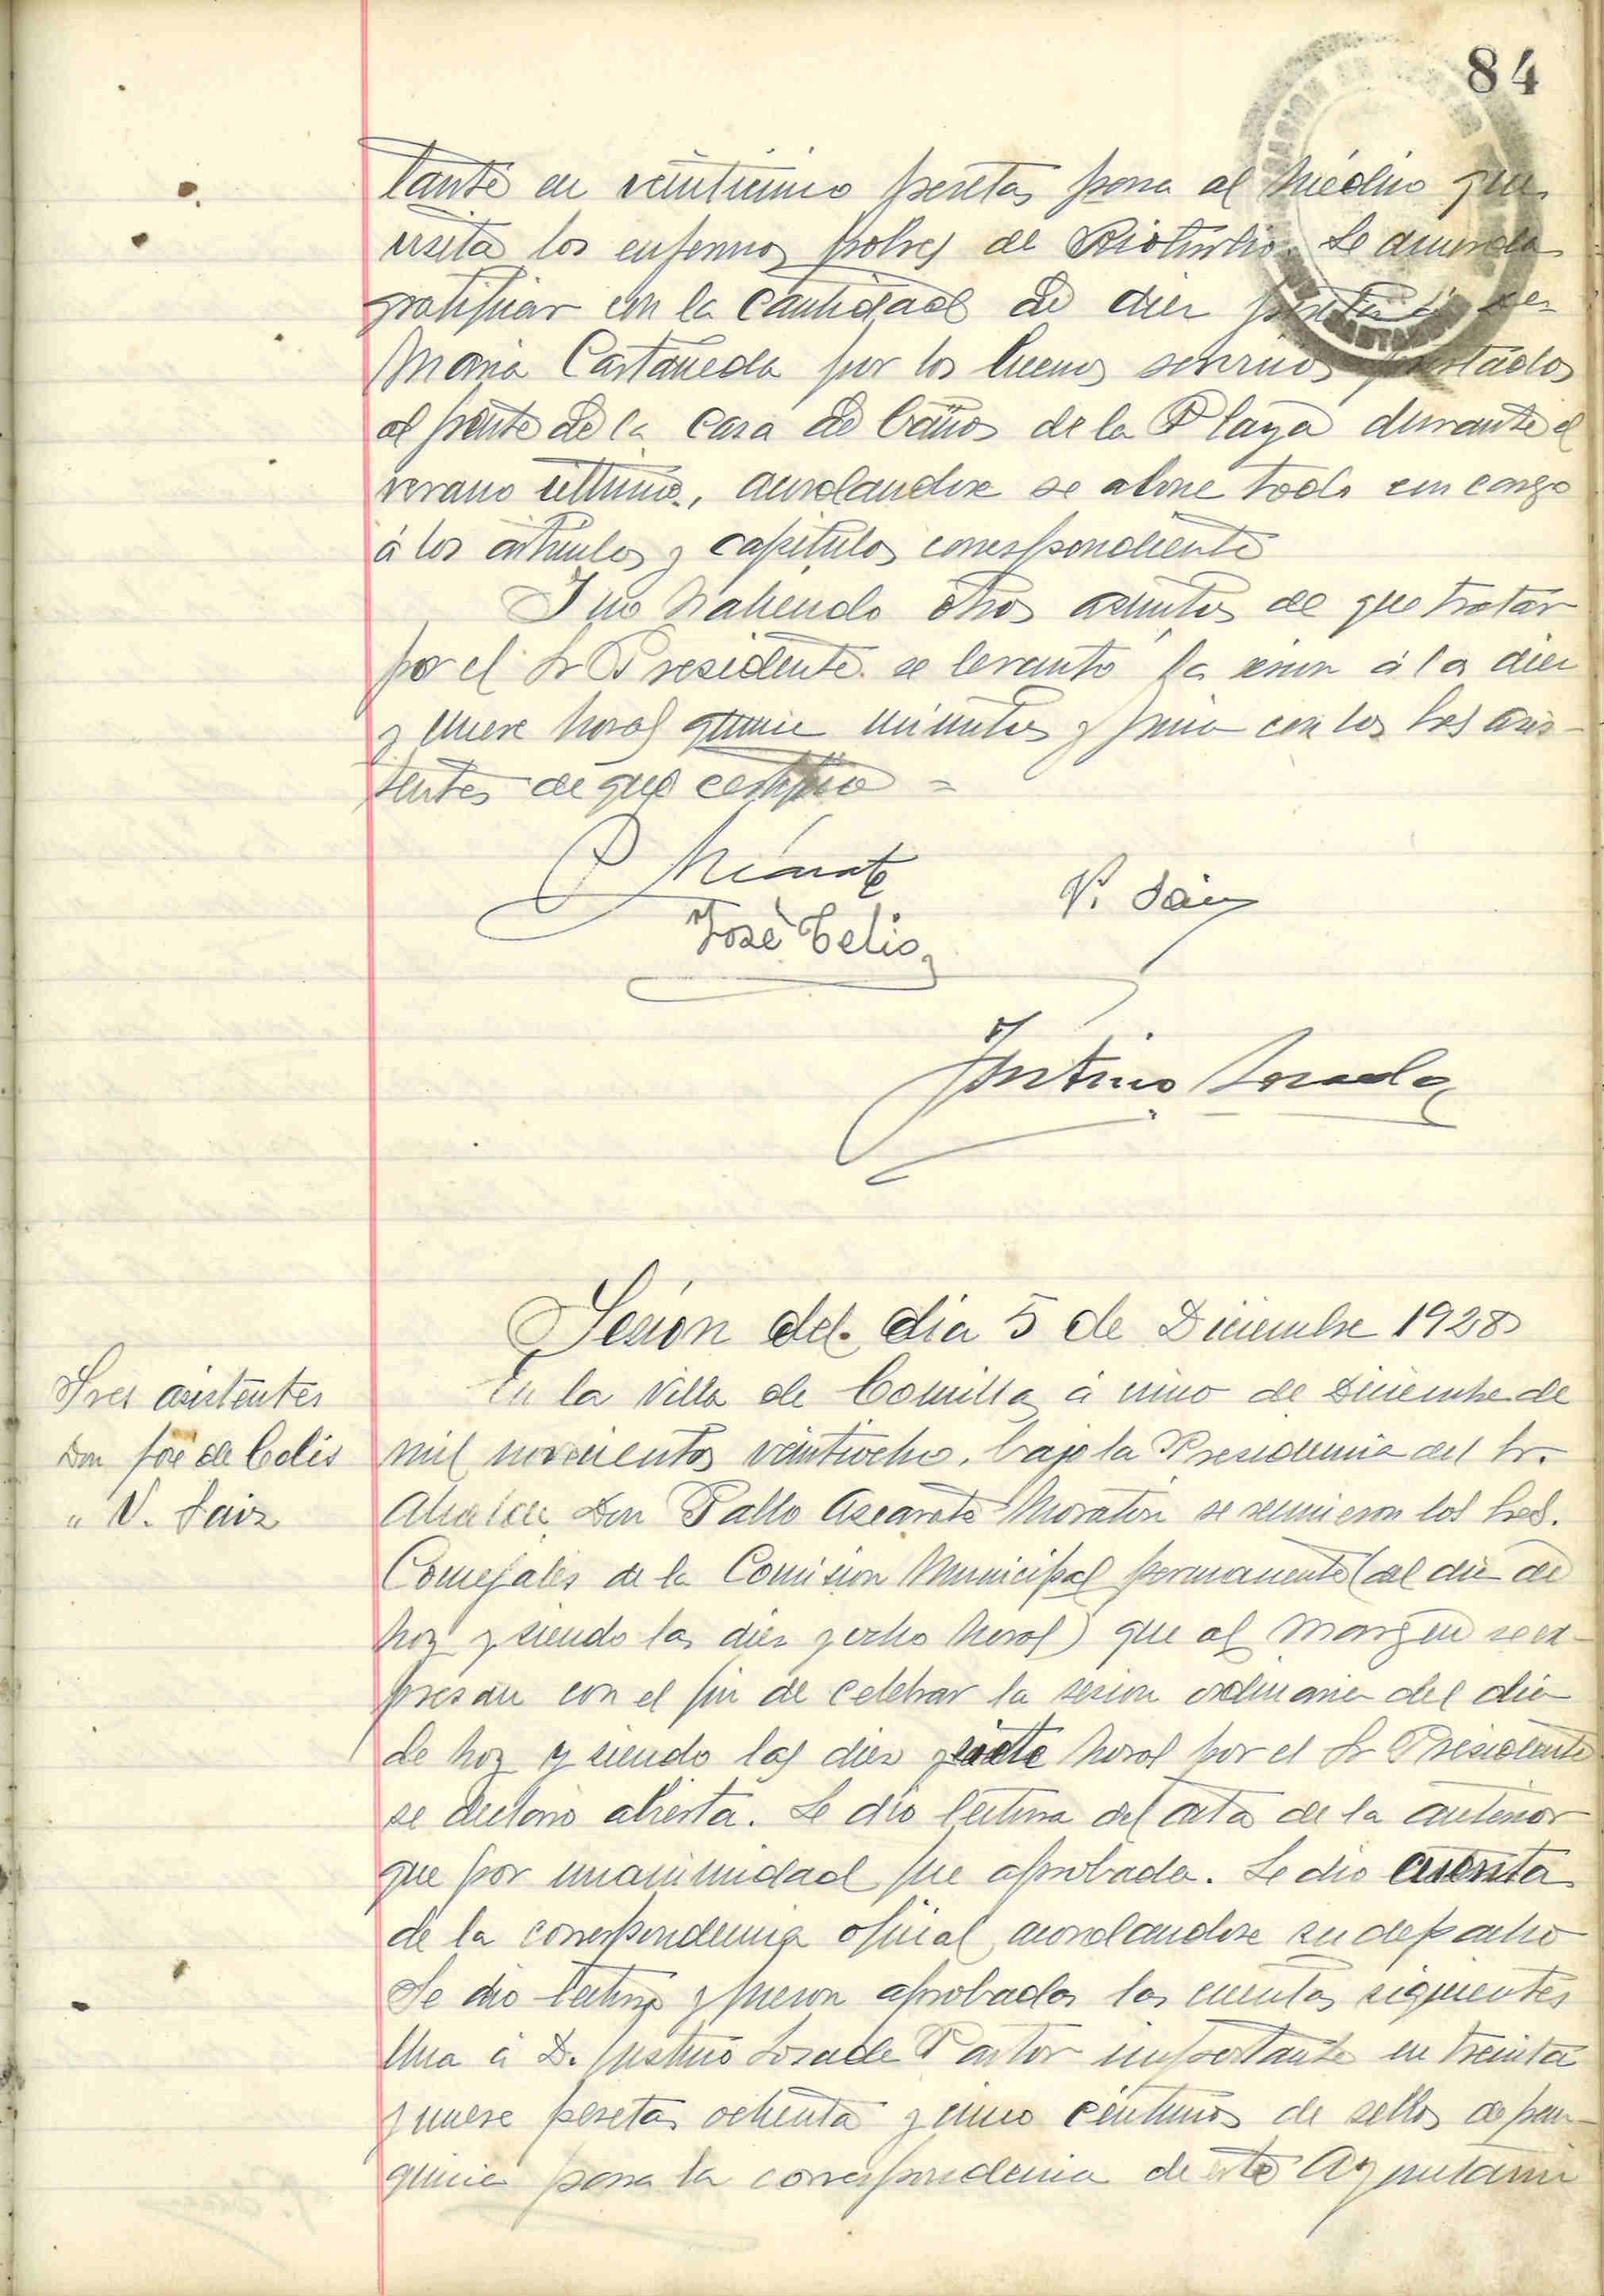 84
tante en veinticinco pesetas para al Médico que
visita los enfermos pobres de Rioturbio. Se acuerda
gratificar con la cantidad de diez pesetas á
Maria Castañeda por los buenos servicios prestados
al frente de la Casa de baños de la Playa durante el
verano ultimo, acordandose se abone todo con cargo
á los articulos y capitulos correspondiente
Y no habiendo otros asuntos de que tratar
por el Sr Presidente se levantó la sesion á las diez
y nueve horas quince minutos y firma con los Sres asis-
tentes de que certifico =
P Azcarate
V. Saiz
José Celis
Justino Losada
Sesion del dia 5 de Diciembre 1928
Sres asistentes
Don José de Celis
" V. Saiz
En la Villa de Comillas á cinco de Diciembre de
mil novecientos veintiocho, bajo la Presidencia del Sr.
Alcalde Don Pablo Azcarate Moraton se reunieron los Sres.
Concejales de la Comision Municipal permanente (del dia de
hoy y siendo las diez y ocho horas) que al margen se ex-
presan con el fin de celebrar la sesion ordinaria del dia
de hoy y siendo las diez y siete horas por el Sr Presidente
se declaro abierta. Se dio lectura del acta de la anterior
que por unanimidad fue aprobada. Se dio cuenta
de la correspondencia oficial acordandose su despacho
Se dio lectura y fueron aprobadas las cuentas siguientes
Una á D. Justino Losada Pastor importante en treinta
y nueve pesetas ochenta y cinco centimos de sellos de fran-
quicia para la correspondencia de este Ayuntami